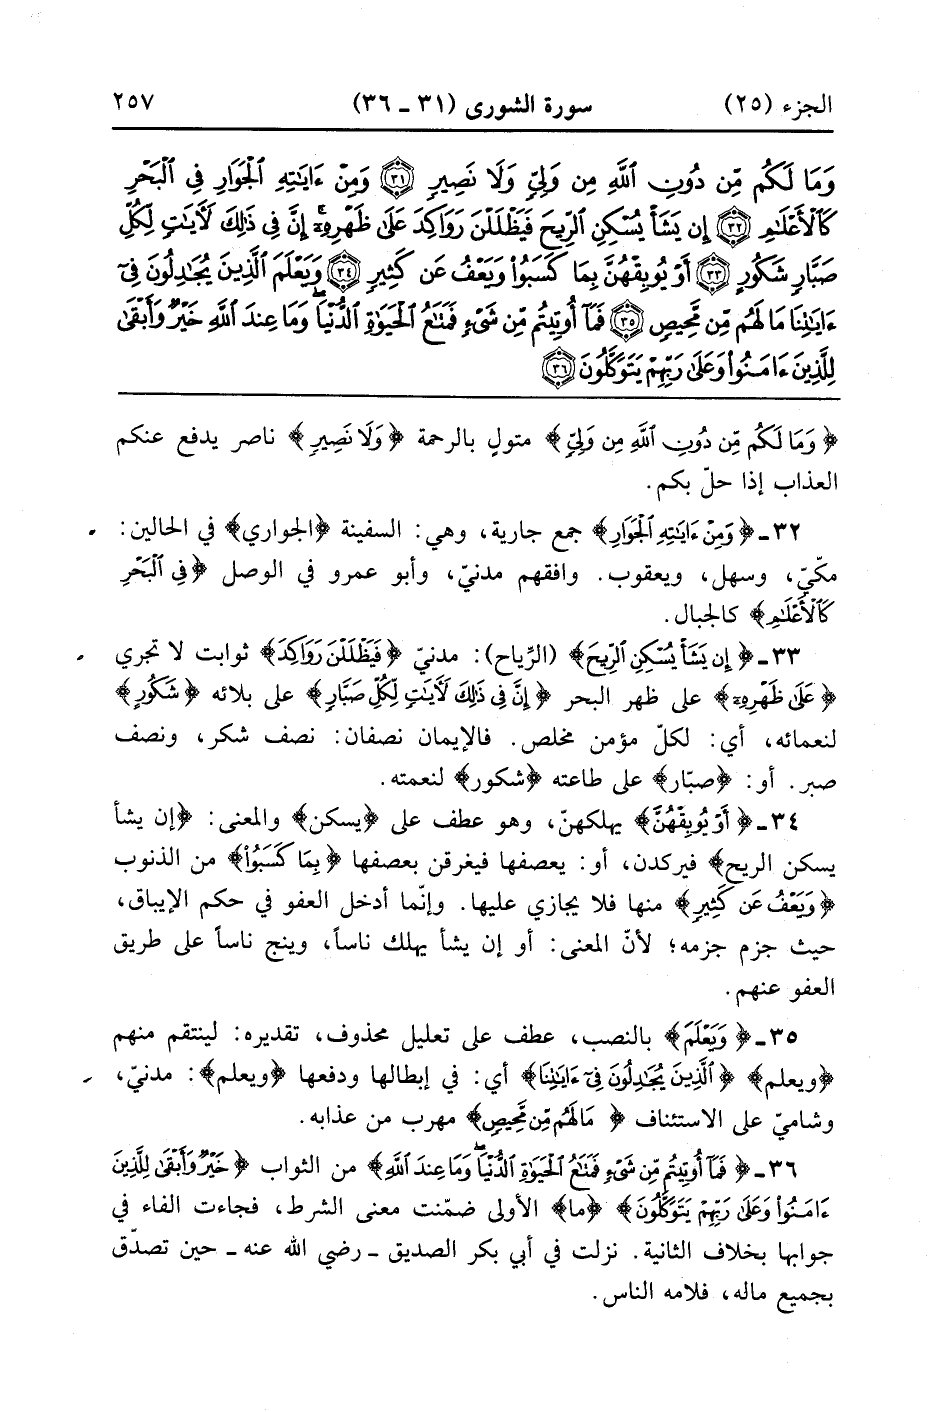 الجزء (٢٥) سورة الشورى (٣١ ـ ٣٦) ٢٥٧
وَمَا لَكُم مِّن دُونِ ٱللَّهِ مِن وَلِيٍّ وَلَا نَصِيرٍ ﴿٣١﴾ وَمِنْ ءَايَٰتِهِ ٱلْجَوَارِ فِي ٱلْبَحْرِ
كَٱلْأَعْلَٰمِ ﴿٣٢﴾ إِن يَشَأْ يُسْكِنِ ٱلرِّيحَ فَيَظْلَلْنَ رَوَاكِدَ عَلَىٰ ظَهْرِهِۦٓ ۚ إِنَّ فِي ذَٰلِكَ لَأٓيَٰتٍ لِّكُلِّ
صَبَّارٍ شَكُورٍ ﴿٣٣﴾ أَوْ يُوبِقْهُنَّ بِمَا كَسَبُوا۟ وَيَعْفُ عَن كَثِيرٍ ﴿٣٤﴾ وَيَعْلَمَ ٱلَّذِينَ يُجَٰدِلُونَ فِىٓ
ءَايَٰتِنَا مَا لَهُم مِّن مَّحِيصٍ ﴿٣٥﴾ فَمَآ أُوتِيتُم مِّن شَىْءٍ فَمَتَٰعُ ٱلْحَيَوٰةِ ٱلدُّنْيَا ۖ وَمَا عِندَ ٱللَّهِ خَيْرٌ وَأَبْقَىٰ
لِلَّذِينَ ءَامَنُوا۟ وَعَلَىٰ رَبِّهِمْ يَتَوَكَّلُونَ ﴿٣٦﴾
﴿وَمَا لَكُم مِّن دُونِ ٱللَّهِ مِن وَلِيٍّ﴾ متولٍ بالرحمة ﴿وَلَا نَصِيرٍ﴾ ناصر يدفع عنكم
العذاب إذا حلّ بكم.
٣٢ـ ﴿وَمِنْ ءَايَٰتِهِ ٱلْجَوَارِ﴾ جمع جارية، وهي: السفينة ﴿الجواري﴾ في الحالين:
مكّيّ، وسهل، ويعقوب. وافقهم مدنيّ، وأبو عمرو في الوصل ﴿فِي ٱلْبَحْرِ
كَٱلْأَعْلَٰمِ﴾ كالجبال.
٣٣ـ ﴿إِن يَشَأْ يُسْكِنِ ٱلرِّيحَ﴾ (الرِّياح): مدنيّ ﴿فَيَظْلَلْنَ رَوَاكِدَ﴾ ثوابت لا تجري
﴿عَلَىٰ ظَهْرِهِۦٓ﴾ على ظهر البحر ﴿إِنَّ فِي ذَٰلِكَ لَأٓيَٰتٍ لِّكُلِّ صَبَّارٍ﴾ على بلائه ﴿شَكُورٍ﴾
لنعمائه، أي: لكلّ مؤمن مخلص. فالإيمان نصفان: نصف شكر، ونصف
صبر. أو: ﴿صبّار﴾ على طاعته ﴿شكور﴾ لنعمته.
٣٤ـ ﴿أَوْ يُوبِقْهُنَّ﴾ يهلكهنّ، وهو عطف على ﴿يسكن﴾ والمعنى: ﴿إن يشأ
يسكن الريح﴾ فيركدن، أو: يعصفها فيغرقن بعصفها ﴿بِمَا كَسَبُوا۟﴾ من الذنوب
﴿وَيَعْفُ عَن كَثِيرٍ﴾ منها فلا يجازي عليها. وإنّما أدخل العفو في حكم الإيباق،
حيث جزم جزمه؛ لأنّ المعنى: أو إن يشأ يهلك ناساً، وينج ناساً على طريق
العفو عنهم.
٣٥ـ ﴿وَيَعْلَمَ﴾ بالنصب، عطف على تعليل محذوف، تقديره: لينتقم منهم
﴿ويعلم﴾ ﴿ٱلَّذِينَ يُجَٰدِلُونَ فِىٓ ءَايَٰتِنَا﴾ أي: في إبطالها ودفعها ﴿ويعلم﴾: مدنيّ،
وشاميّ على الاستئناف ﴿مَا لَهُم مِّن مَّحِيصٍ﴾ مهرب من عذابه.
٣٦ـ ﴿فَمَآ أُوتِيتُم مِّن شَىْءٍ فَمَتَٰعُ ٱلْحَيَوٰةِ ٱلدُّنْيَا ۖ وَمَا عِندَ ٱللَّهِ﴾ من الثواب ﴿خَيْرٌ وَأَبْقَىٰ لِلَّذِينَ
ءَامَنُوا۟ وَعَلَىٰ رَبِّهِمْ يَتَوَكَّلُونَ﴾ ﴿ما﴾ الأولى ضمّنت معنى الشرط، فجاءت الفاء في
جوابها بخلاف الثانية. نزلت في أبي بكر الصديق ـ رضي الله عنه ـ حين تصدّق
بجميع ماله، فلامه الناس.